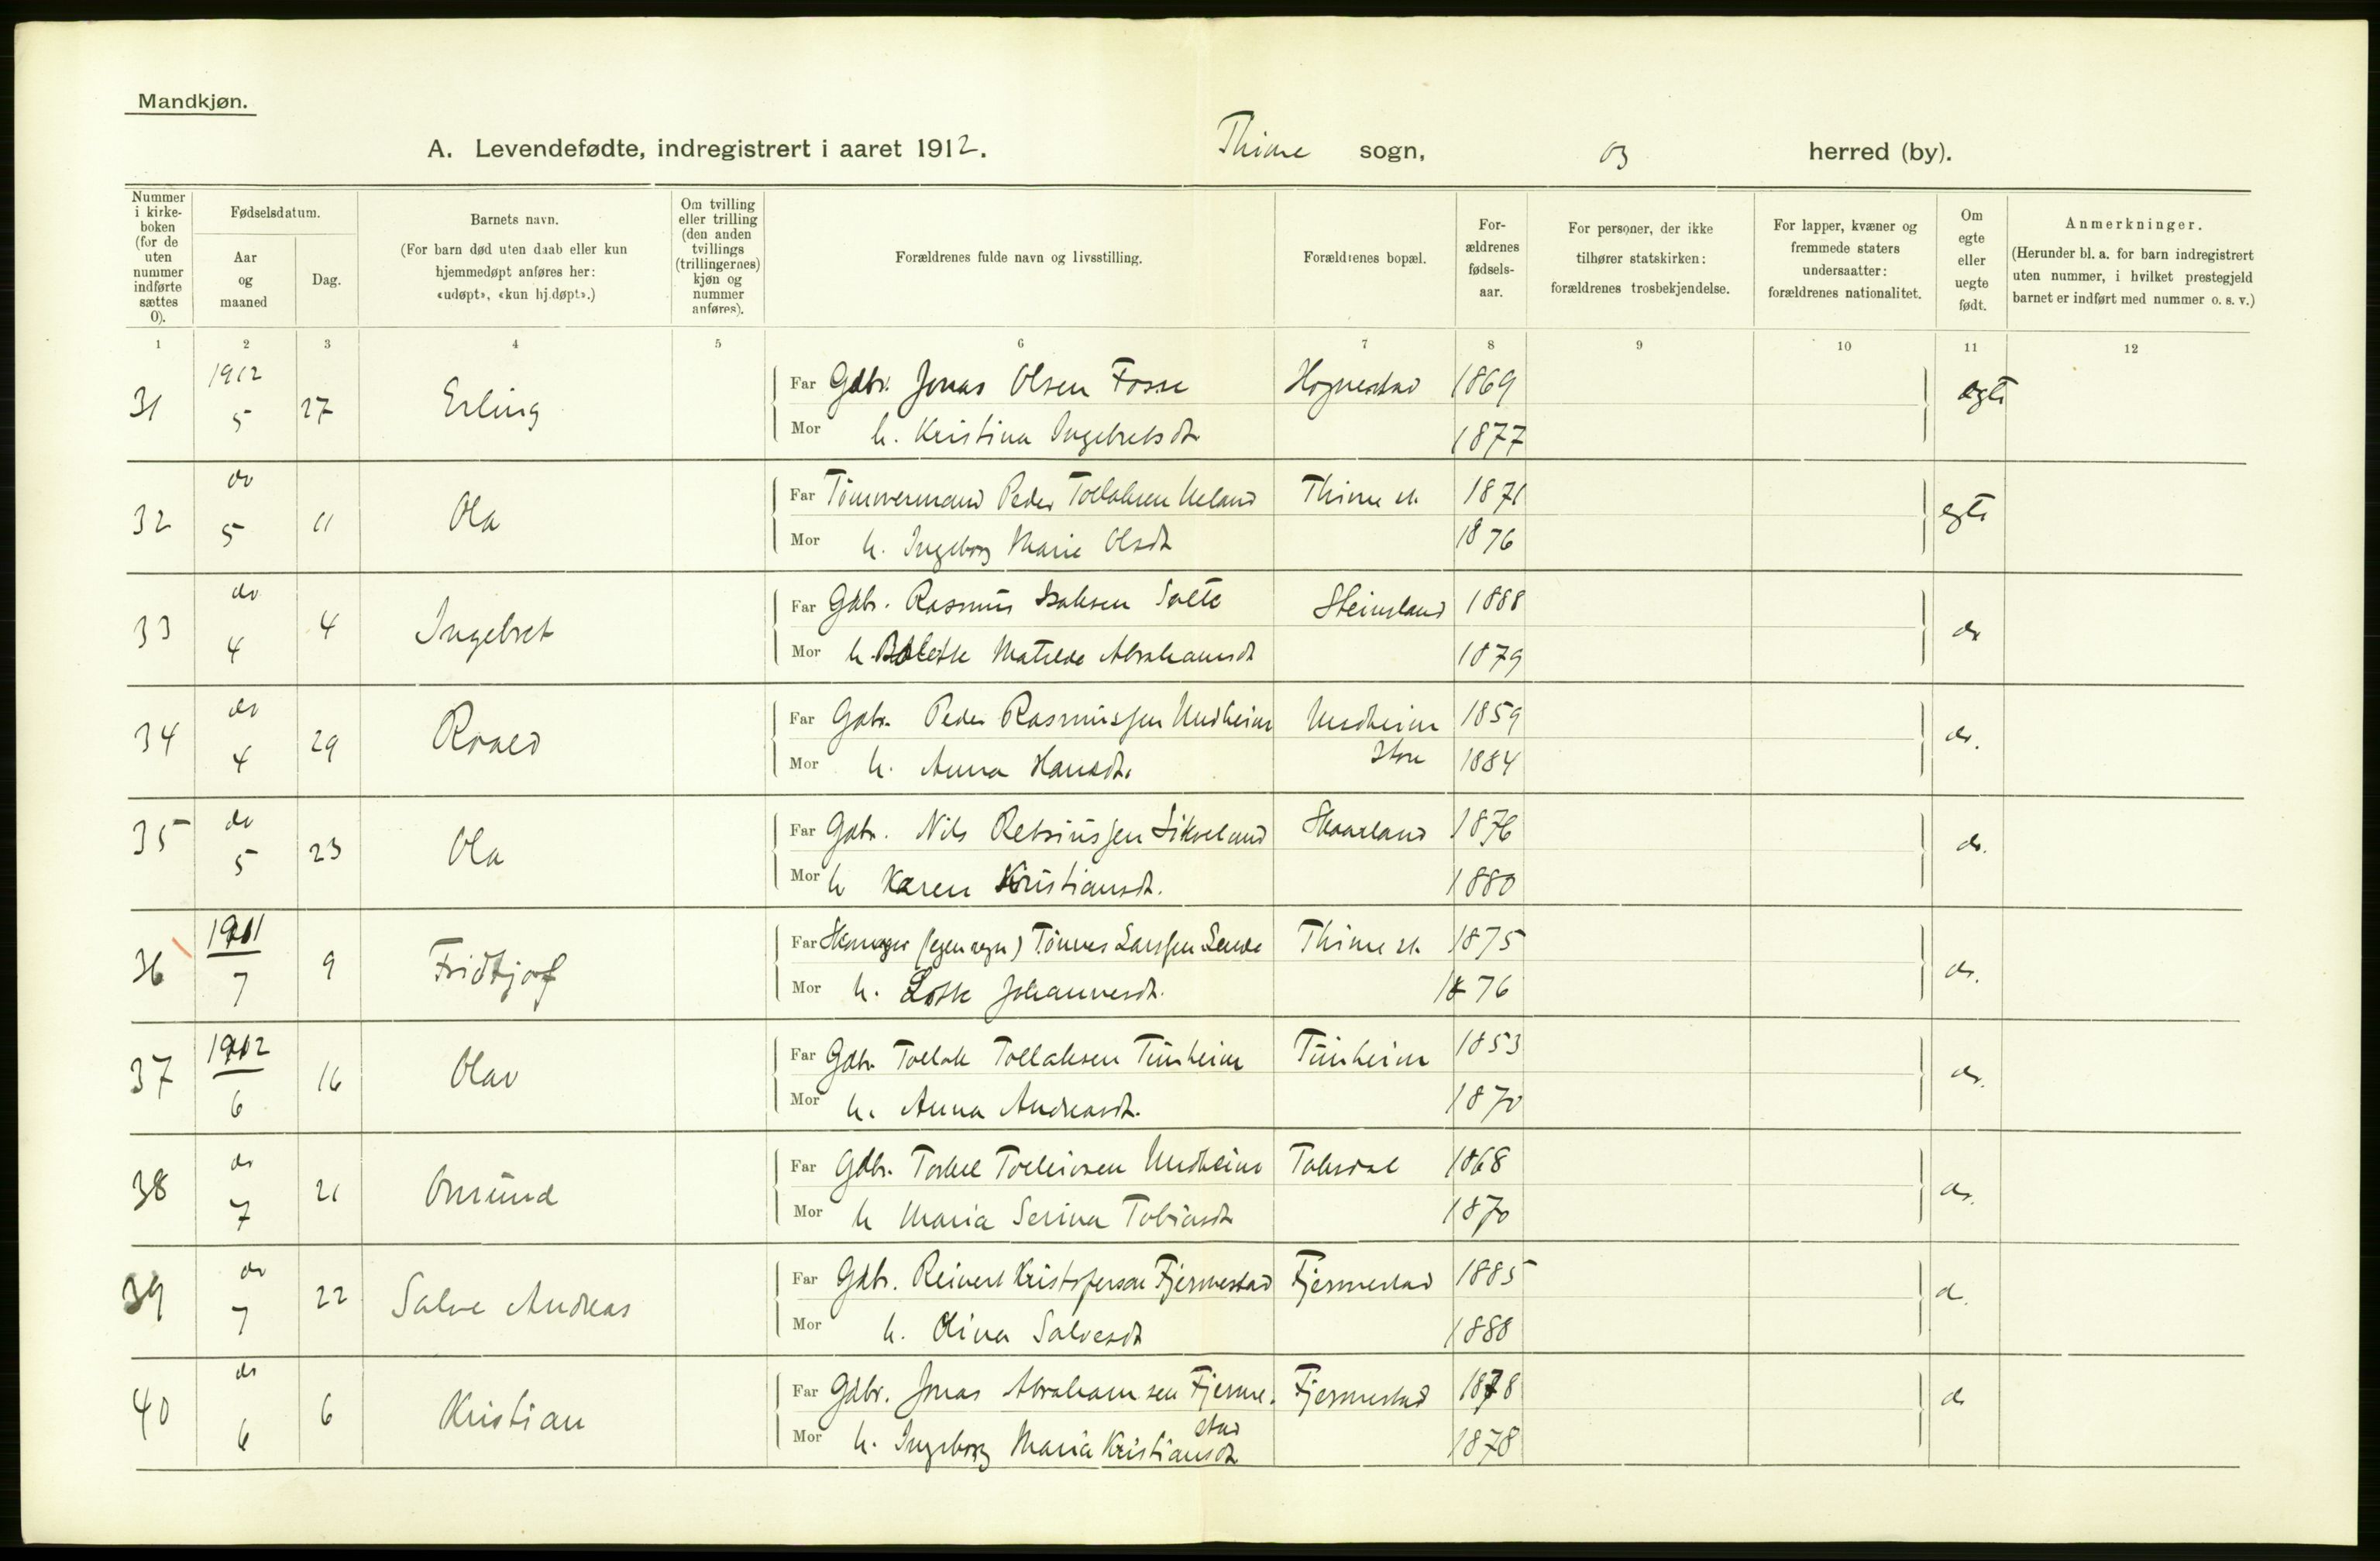 Mandkjøn.
A. Levendefødte, indregistrert i aaret 1912. Thime sogn, og herred (by).
Nummer i kirke-boken (for de uten nummer indførte sættes 0).
Fødselsdatum.
Aar og maaned
Dag.
Barnets navn.
(For barn død uten daab eller kun hjemmedøpt anføres her: «udøpt», «kun hj.døpt».)
Om tvilling eller trilling (den anden tvillings (trillingernes) kjøn og nummer anføres).
Forældrenes fulde navn og livsstilling.
Forældrenes bopæl.
For-ældrenes fødsels-aar.
For personer, der ikke tilhører statskirken: forældrenes trosbekjendelse.
For lapper, kvæner og fremmede staters undersaatter: forældrenes nationalitet.
Om egte eller uegte født.
Anmerkninger.
(Herunder bl. a. for barn indregistrert uten nummer, i hvilket prestegjeld barnet er indført med nummer o. s. v.)
1 2 3 4 5 6 7 8 9 10 11 12
31 1912 5 27 Erling Far Gdbr. Jonas Olsen Fosse Hognestad 1869 egte
Mor h. Kristina Ingebretsdt. 1877
32 do 5 11 Ola Far Tømmermand Peder Tollaksen Ueland Thime st. 1871 egte
Mor h. Ingeborg Marie Olsdt 1876
33 do 4 4 Ingebret Far Gdbr. Rasmus Isaksen Salte Steinsland 1888 do
Mor h. Bolette Matilde Abrahamsdt 1879
34 do 4 29 Roald Far Gdbr. Peder Rasmussen Undheim Undheim 1859 do.
Mor h. Anna Hansdt. Store 1884
35 do 5 23 Ola Far Gdbr. Nils Retsiussen Sikveland Skaarland 1876 do.
Mor h Karen Kristiansdt. 1880
36 1911 7 9 Fridtjof Far Skomager (egen regn) Tønnes Larssen Lende Thime st. 1875 do.
Mor h. Lotte Johannesdt. 1876
37 1912 6 16 Olav Far Gdbr. Tollak Tollaksen Tunheim Tunheim 1853 do.
Mor h. Anna Andreasdt. 1870
38 do 7 21 Omund Far Gdbr. Torkel Tolleivsen Undheim Taksdal 1868 do.
Mor h Maria Serina Tobiasdt 1870
39 do 7 22 Salve Andreas Far Gdbr. Reinert Kristofersen Fjermestad Fjermestad 1885 d.
Mor h. Olina Salvesdt 1888
40 do 6 6 Kristian Far Gdbr. Jonas Abrahamsen Fjerme- Fjermestad 1878 do
stad
Mor h. Ingeborg Maria Kristiansdt 1878